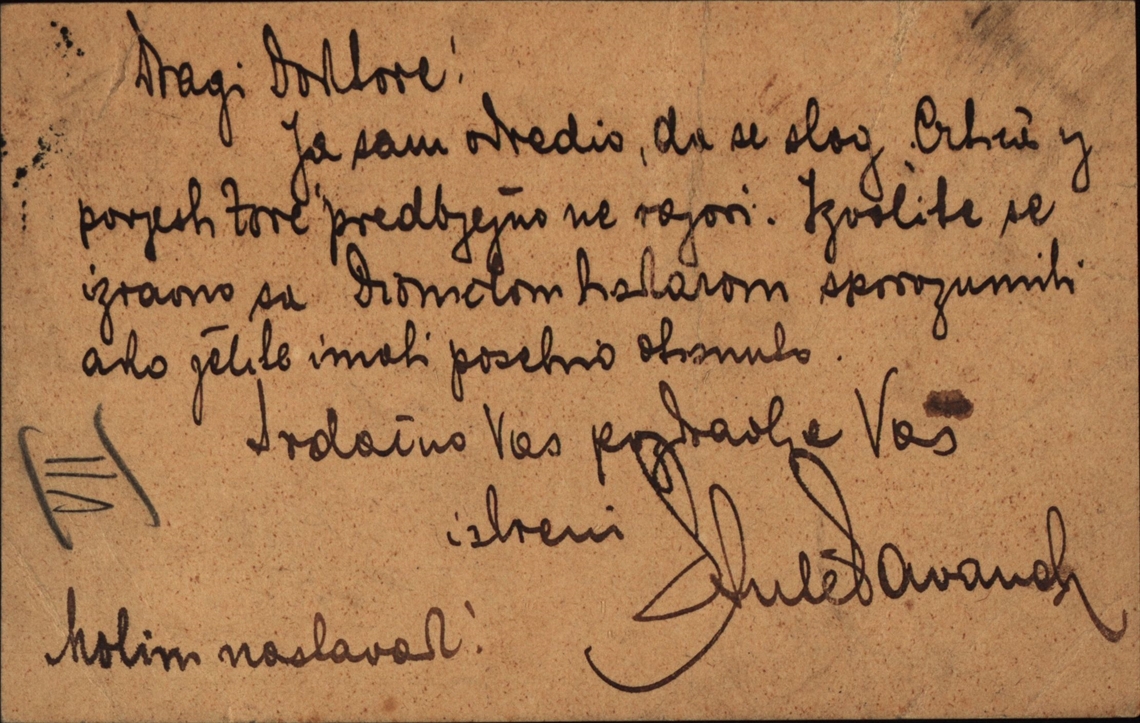 Dragi Doktore!
Ja sam odredio, da se slog Crtice iz
povjesti Zore predbježno ne razori. Izvolite se
izravno sa Dioničkom tiskarom sporozumiti
ako želite imati posebno otisnuto.
Srdačno Vas pozdravlja Vaš
iskreni
Molim nastavak!